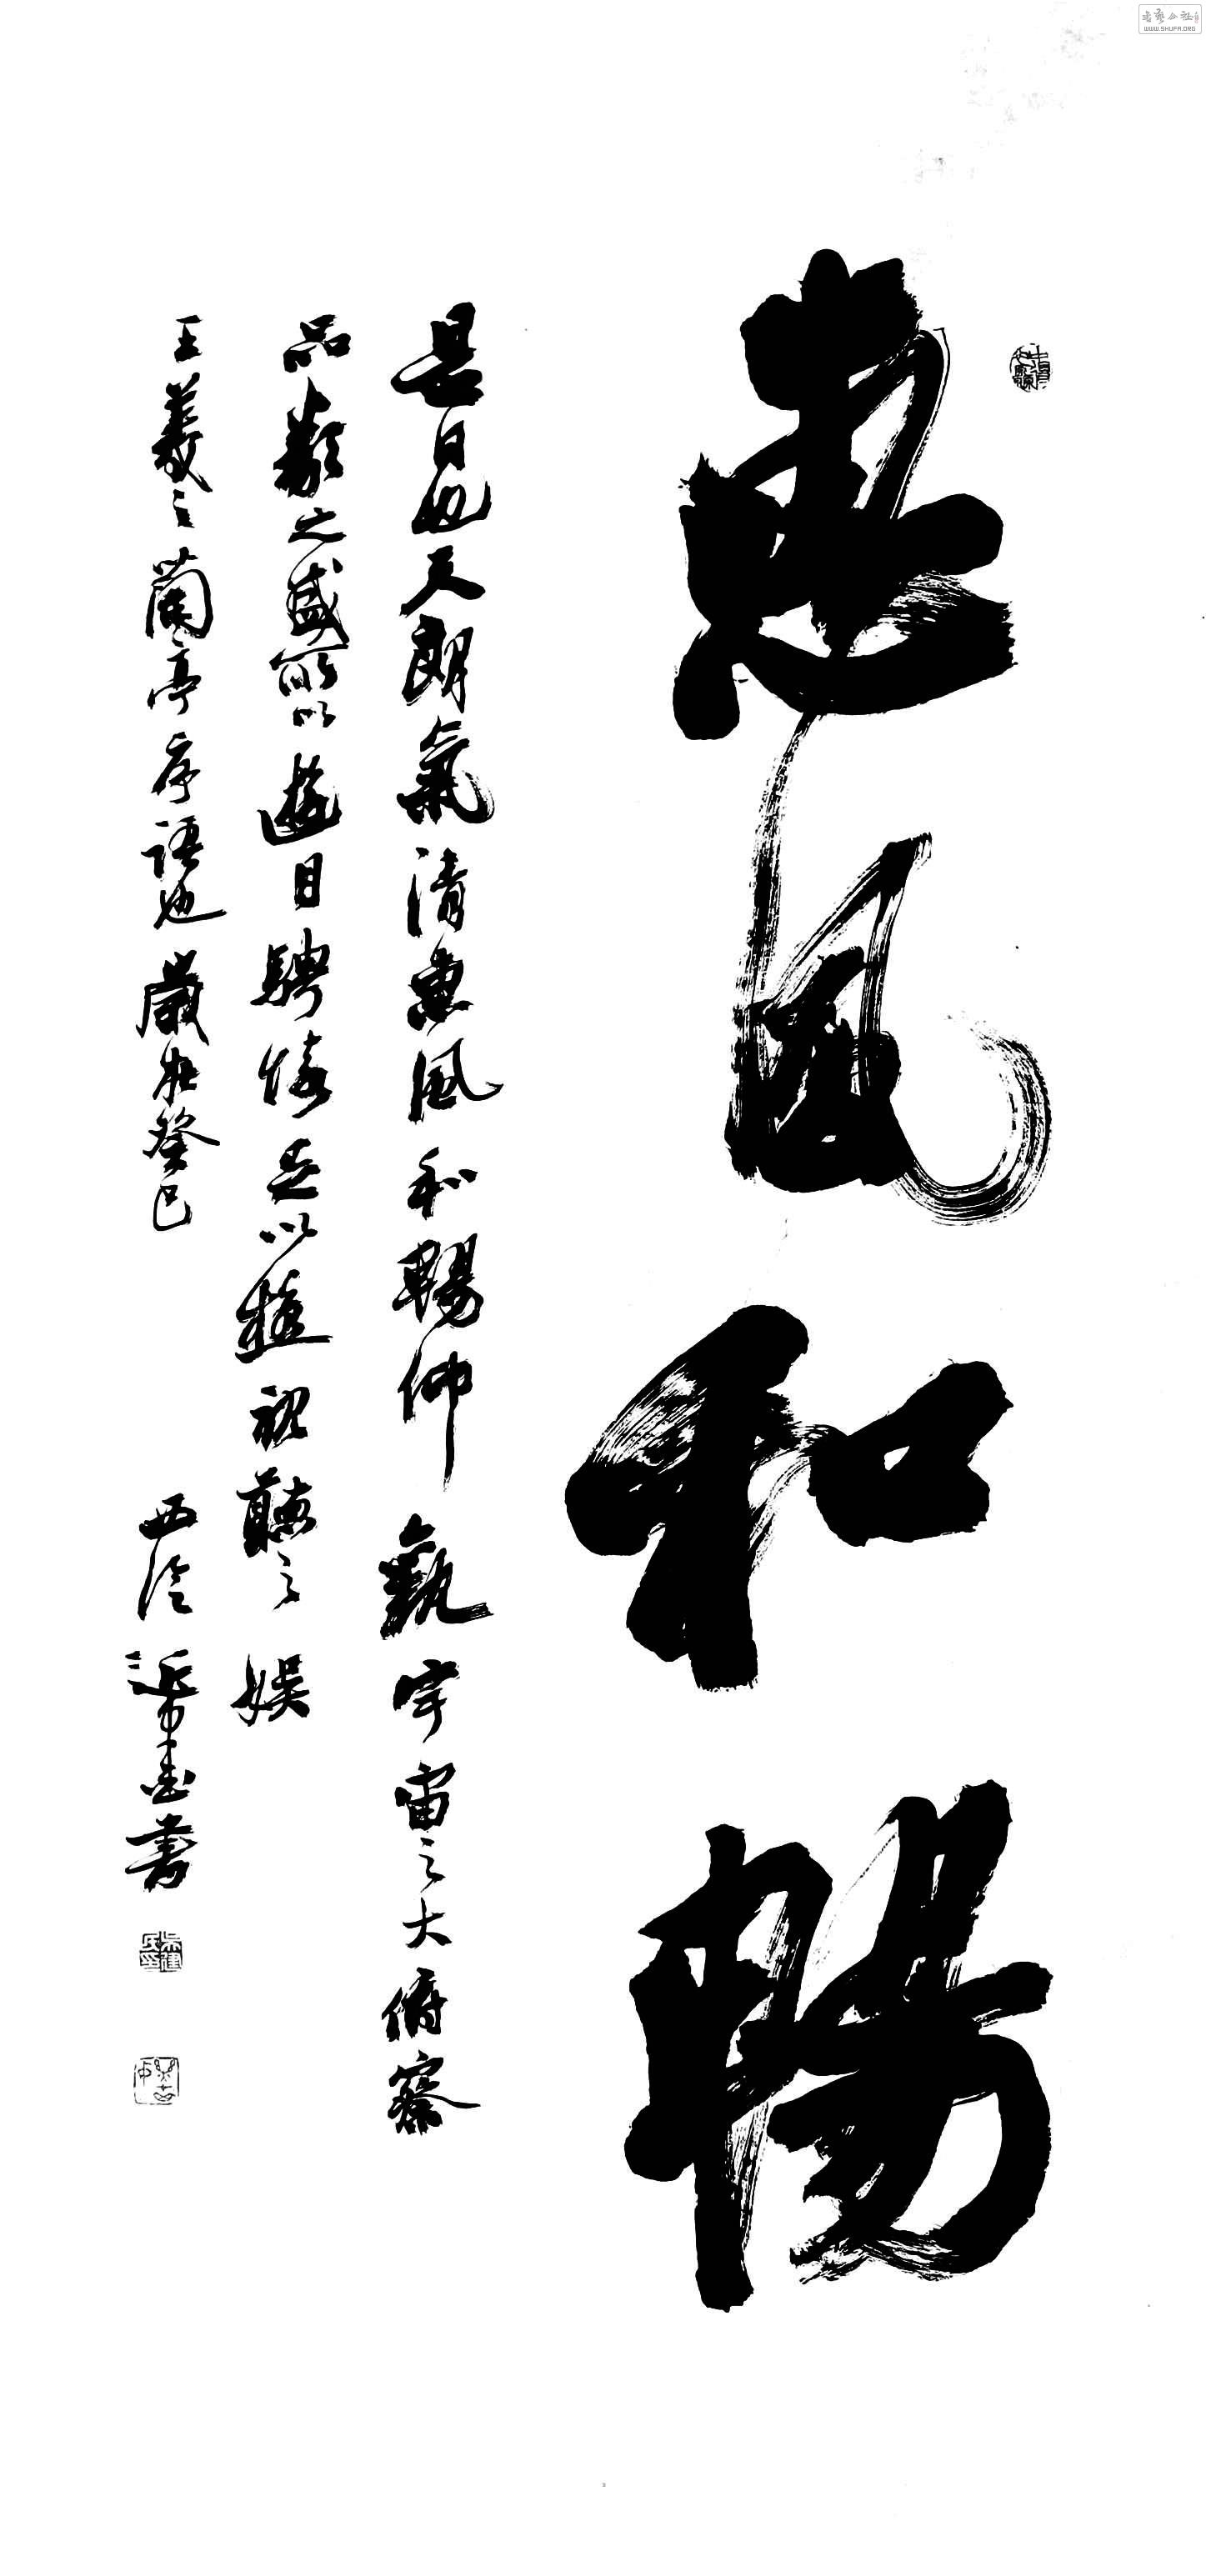 惠風和暢
是日也天朗氣清惠風和暢仰觀宇宙之大俯察
品類之盛所以遊目騁懷足以極視聽之娛
王羲之蘭亭序語也歲在癸巳
西泠 書
WWW.SHUFA.ORG